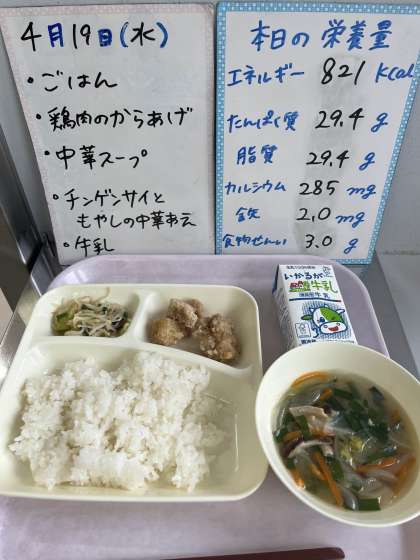 4月19日(水)
・ごはん
・鶏肉のからあげ
・中華スープ
・チンゲンサイと
もやしの中華あえ
・牛乳
本日の栄養量
エネルギー 821 Kcal
たんぱく質 29.4 g
脂質 29.4 g
カルシウム 285 mg
鉄 2.0 mg
食物せんい 3.0 g
いかるが
牛乳